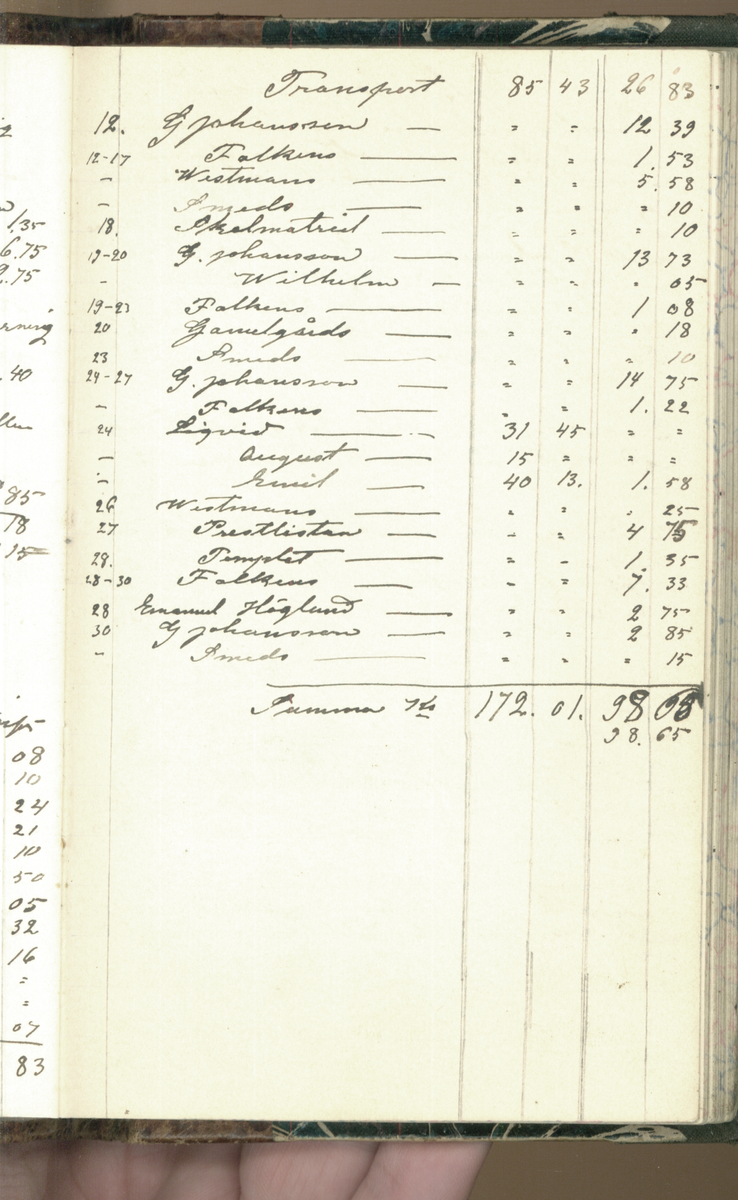 1.35
6.75
9.75
rning
.40
85
18
15
08
10
24
21
10
50
05
32
16
"
"
07
83
Transport 85 43 26 83
12. G Johansson — " " 12 39
12-17 Falkens — " " 1. 53
– Westmans — " " 5. 58
– Smeds — " " " 10
18. — " " " 10
19-20 G. Johansson — " " 13 73
– Wilhelm — " " " 05
19-23 Falkens — " " 1 08
20 Gamelgårds — " " " 18
23 Smeds — " " " 10
24-27 G. Johansson — " " 14 75
– Falkens — " " 1. 22
24 Liqvid — 31 45 " "
– August — 15 " " "
– Emil — 40 13. 1. 58
26 Westmans — " " " 25
27 Prestlistan — " " 4 75
28. Templet — " " 1. 35
28-30 Falkens — " " 7. 33
28 Emanuel Höglund — " " 2 75
30 G Johansson — " " 2 85
– Smeds — " " " 15
Summa Kr 172. 01. 98
98. 65